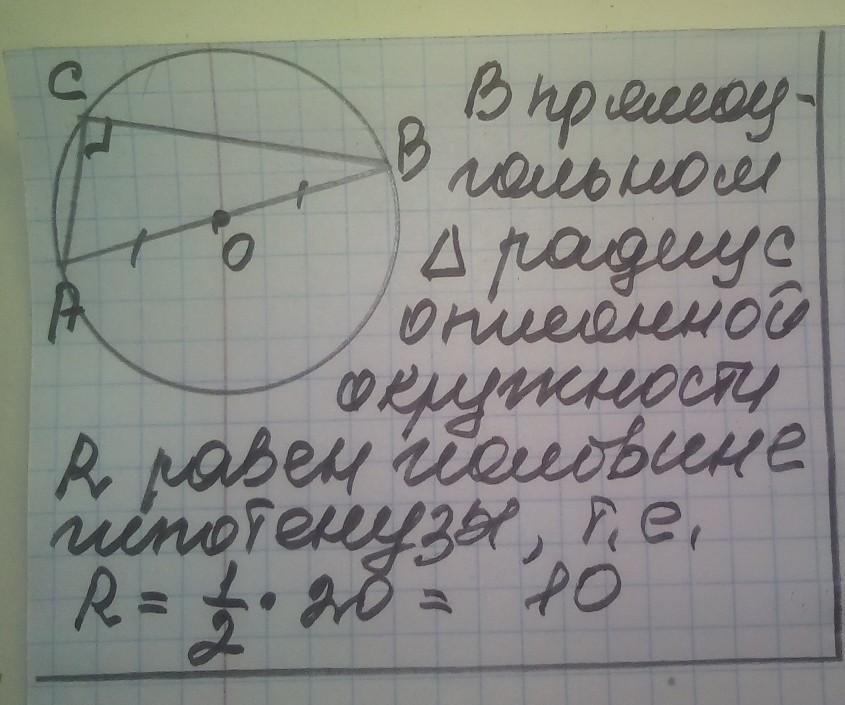 C
B
O
A
В прямоу-
гольном
Δ радиус
описанной
окружности
R равен половине
гипотенузы, т.е.
R = 1/2 · 20 = 10